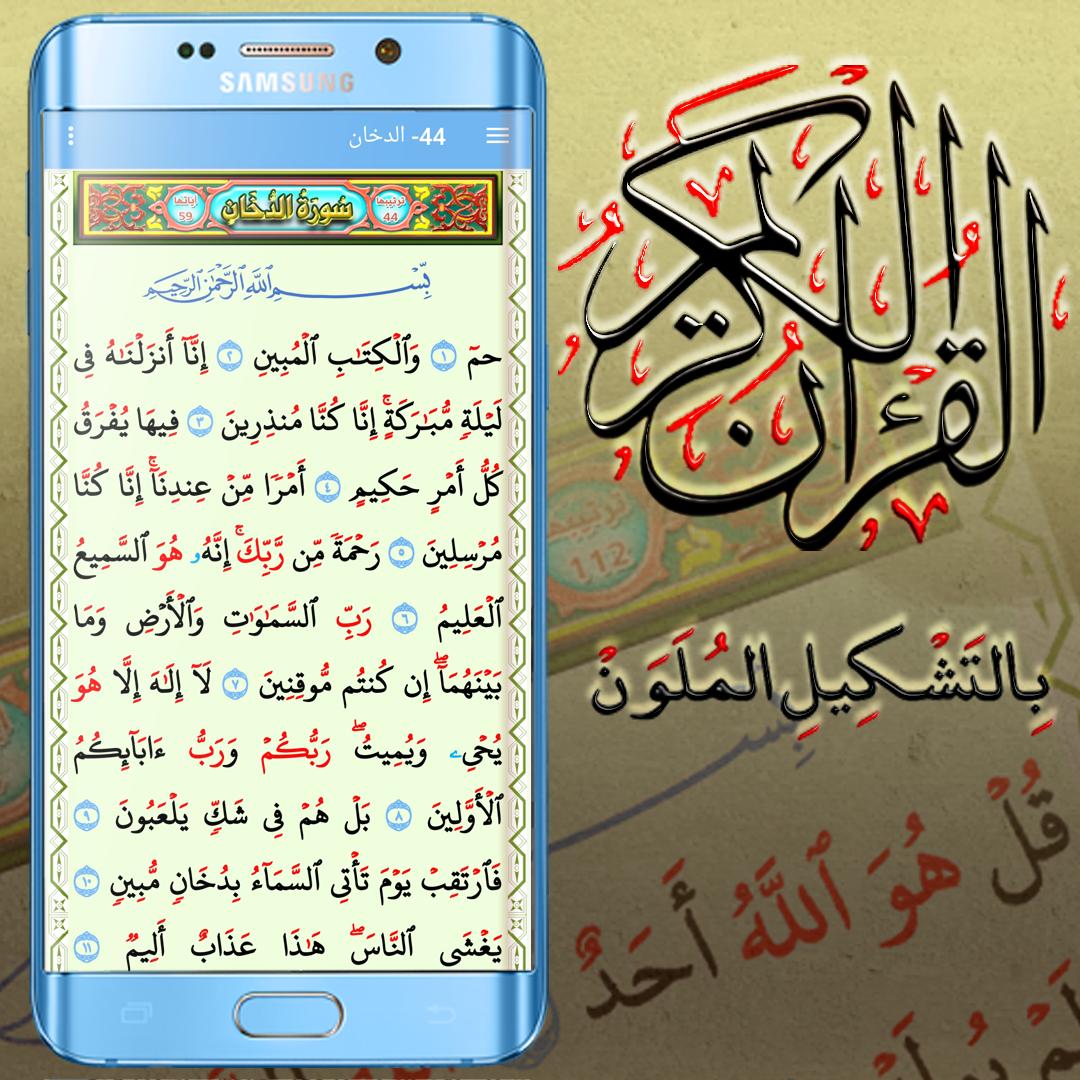 SAMSUNG
44- الدخان
ترتيبها 44 سُورَةُ الدُّخَانِ آياتها 59
بِّسْمِ ٱللَّهِ ٱلرَّحْمَٰنِ ٱلرَّحِيمِ
حمٓ ١ وَٱلْكِتَٰبِ ٱلْمُبِينِ ٢ إِنَّآ أَنزَلْنَٰهُ فِى
لَيْلَةٍ مُّبَٰرَكَةٍ ۚ إِنَّا كُنَّا مُنذِرِينَ ٣ فِيهَا يُفْرَقُ
كُلُّ أَمْرٍ حَكِيمٍ ٤ أَمْرًا مِّنْ عِندِنَآ ۚ إِنَّا كُنَّا
مُرْسِلِينَ ٥ رَحْمَةً مِّن رَّبِّكَ ۚ إِنَّهُۥ هُوَ ٱلسَّمِيعُ
ٱلْعَلِيمُ ٦ رَبِّ ٱلسَّمَٰوَٰتِ وَٱلْأَرْضِ وَمَا
بَيْنَهُمَآ ۖ إِن كُنتُم مُّوقِنِينَ ٧ لَآ إِلَٰهَ إِلَّا هُوَ
يُحْىِۦ وَيُمِيتُ ۖ رَبُّكُمْ وَرَبُّ ءَابَآئِكُمُ
ٱلْأَوَّلِينَ ٨ بَلْ هُمْ فِى شَكٍّ يَلْعَبُونَ ٩
فَٱرْتَقِبْ يَوْمَ تَأْتِى ٱلسَّمَآءُ بِدُخَانٍ مُّبِينٍ ١٠
يَغْشَى ٱلنَّاسَ ۖ هَٰذَا عَذَابٌ أَلِيمٌ ١١
القُرْآن الكَرِيمْ
بِالتَشْكِيلِ المُلَوَنْ
ترتيبها
112
بِّسْمِ
قُلْ هُوَ ٱللَّهُ أَحَدٌ
لَمْ يَلِدْ